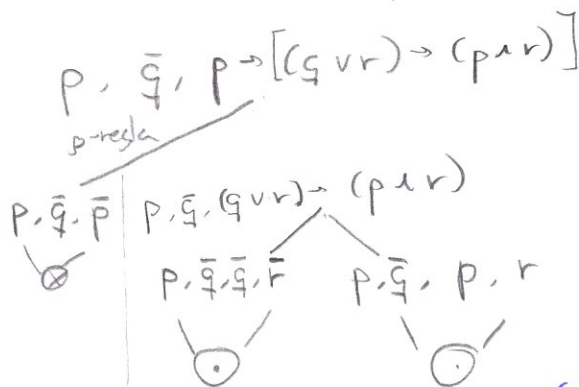 p, q̄, p → [(q ∨ r) → (p ∧ r)]
β-regla
p, q̄, p̄
p, q̄, (q ∨ r) → (p ∧ r)
p, q̄, q̄, r̄
p, q̄, p, r